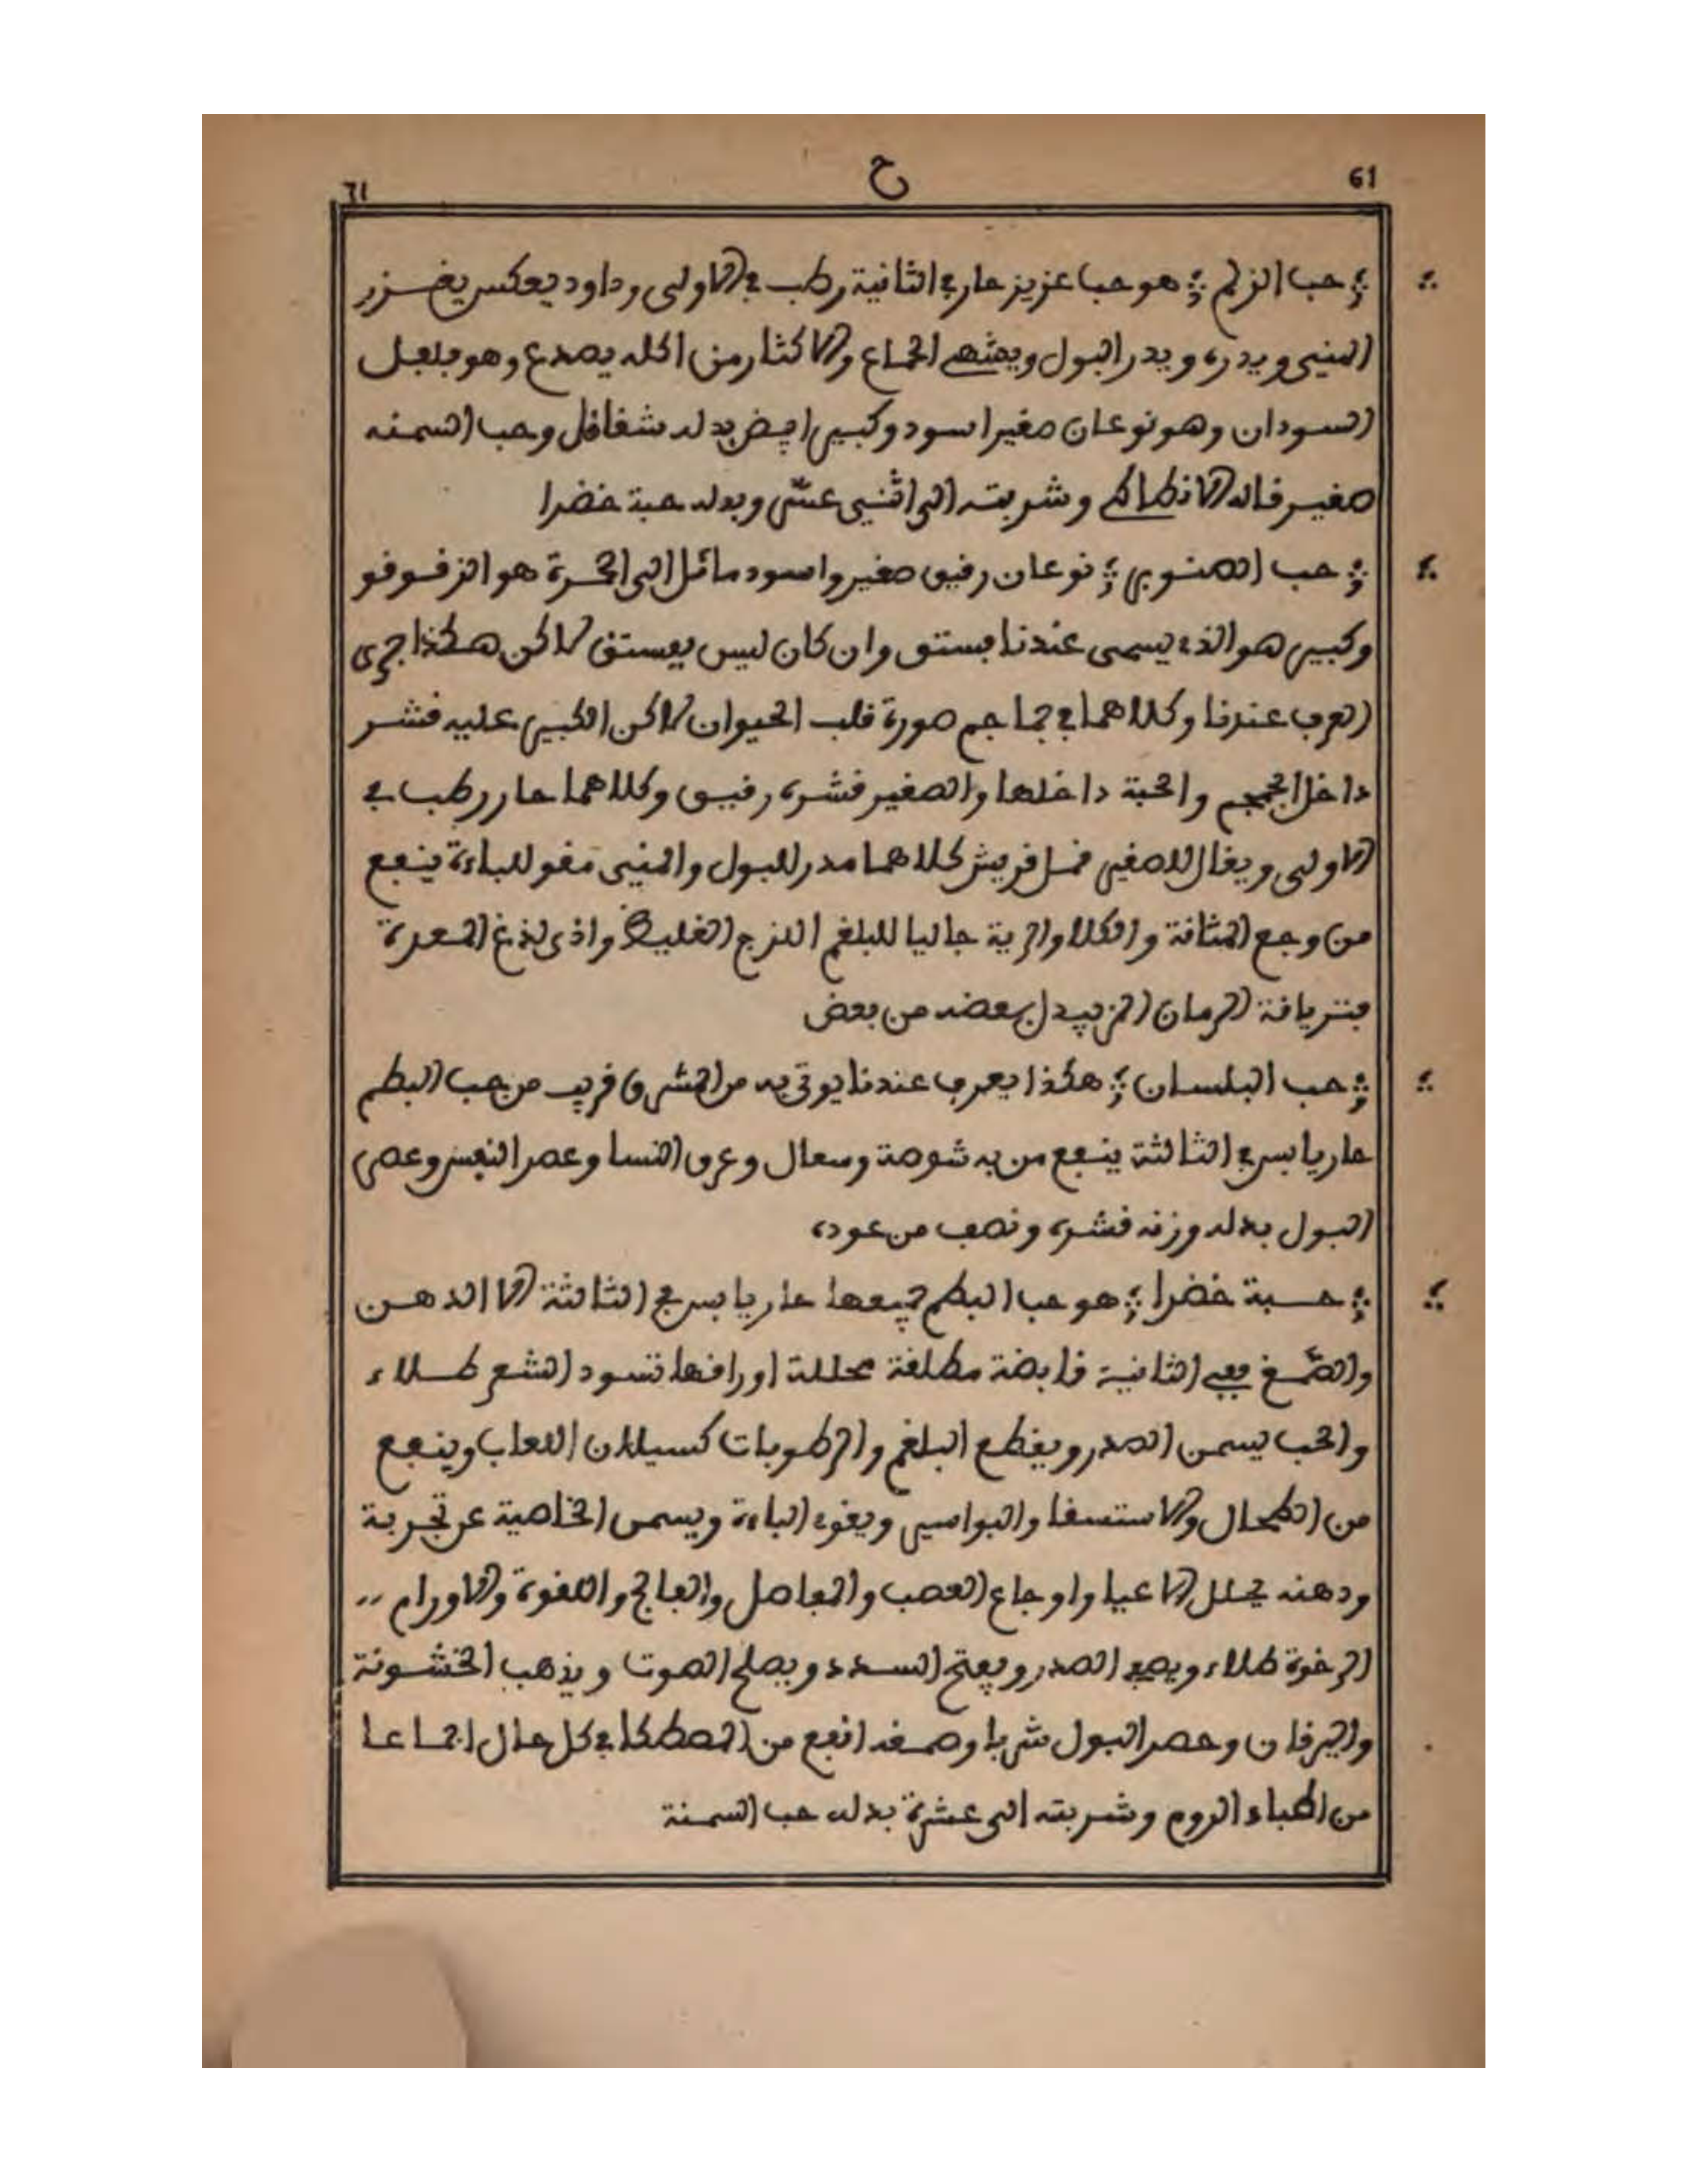 61 ح 61
حب الزلم هو حب عزيز حار في الثانية رطب في الاولى وداود يعكس يغزر
المني ويدره ويدر البول ويشهي الجماع والاكثار من اكله يصدع وهو فلفل
السودان وهو نوعان صغير اسود وكبير ابيض بدله شقاقل وحب السمنه
صغير قاله الانطاكي وشربته الى اثنى عشر وبدله حبة خضرا
حب الصنوبر نوعان رقيق صغير واسود مائل الى الحمرة هو الزقوقو
وكبير هو الذي يسمى عندنا بستق وان كان ليس بفستق لاكن هكذا جرى
العرف عندنا وكلاهما في جماجم صورة قلب الحيوان لاكن الكبير عليه قشر
داخل الجمجم والحبة داخلها والصغير قشره رقيق وكلاهما حار رطب في
الاولى ويقال للصغير قضم قريش كلاهما مدر للبول والمني مقو للباءة ينفع
من وجع المثانة والكلا والرية جاليا للبلغم اللزج الغليظ واذى لذغ المعدة
فترياقة الرمان المز يبدل بعضه من بعض
حب البلسان هكذا يعرف عندنا يوتى به من المشرق قريب من حب البطم
حار يابس في الثالثة ينفع من به شوصة وسعال وعرق النسا وعصر النفس وعصر
البول بدله وزنه قشره ونصف من عوده
حبة خضرا هو حب البطم جميعها حار يابس في الثالثة الا الدهن
والصمغ ففي الثانية قابضة مطلقة محللة اوراقها تسود الشعر طلاء
والحب يسمن الصدر ويقطع البلغم والرطوبات كسيلان اللعاب وينفع
من الطحال والاستسقا والبواسير ويقوي الباءة ويسمن الخاصية عن تجربة
ودهنه يحلل الاعيا واوجاع العصب والمفاصل والفالج واللقوة والاورام
الرخوة طلاء ويصفي الصدر ويفتح السدد ويصلح الصوت ويذهب الخشونة
واليرقان وحصر البول شربا وصمغه انفع من المصطكا في كل حال اجماعا
من اطباء الروم وشربته الى عشرة بدله حب السمنة